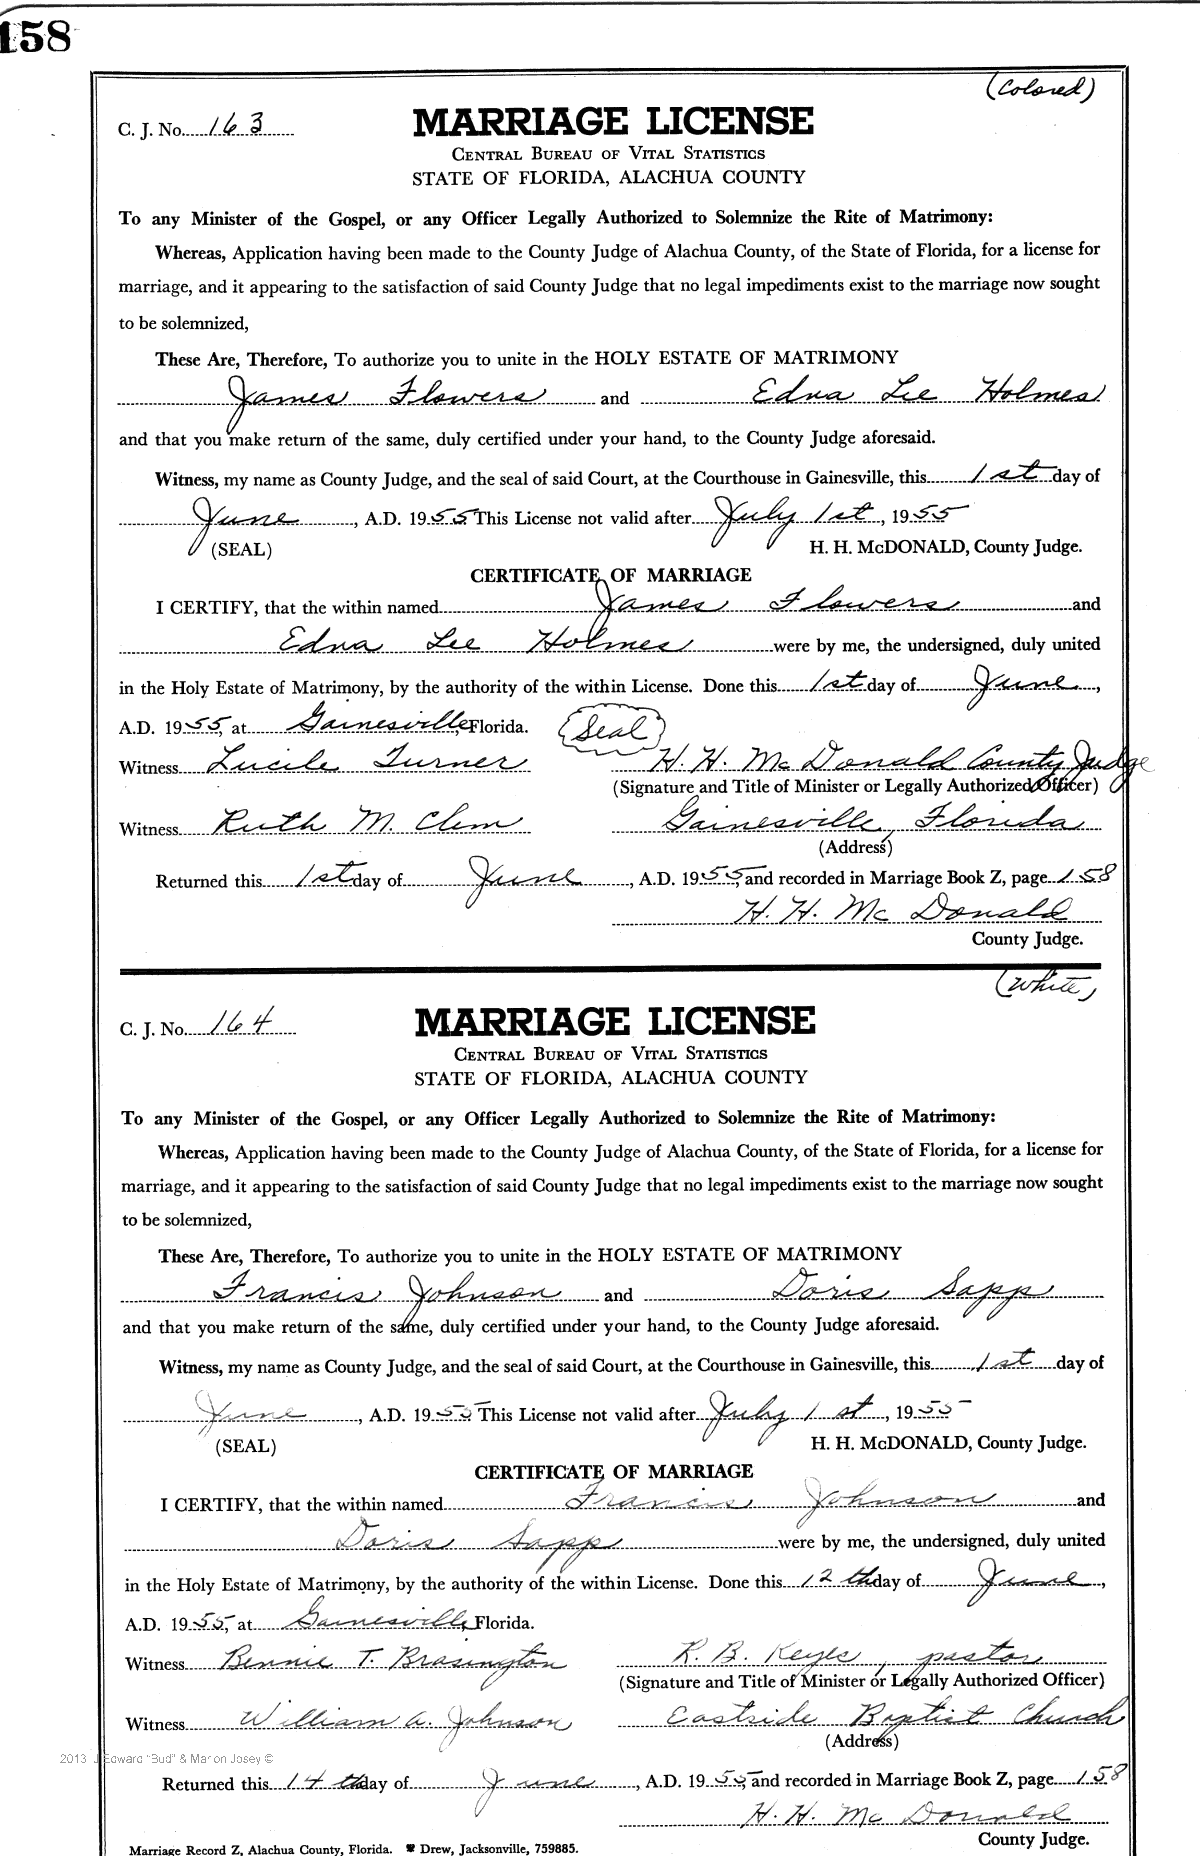 158
(Colored)
C. J. No. 163
MARRIAGE LICENSE
CENTRAL BUREAU OF VITAL STATISTICS
STATE OF FLORIDA, ALACHUA COUNTY
To any Minister of the Gospel, or any Officer Legally Authorized to Solemnize the Rite of Matrimony:
Whereas, Application having been made to the County Judge of Alachua County, of the State of Florida, for a license for
marriage, and it appearing to the satisfaction of said County Judge that no legal impediments exist to the marriage now sought
to be solemnized,
These Are, Therefore, To authorize you to unite in the HOLY ESTATE OF MATRIMONY
James Flowers and Edna Lee Holmes
and that you make return of the same, duly certified under your hand, to the County Judge aforesaid.
Witness, my name as County Judge, and the seal of said Court, at the Courthouse in Gainesville, this 1st day of
June, A.D. 1955 This License not valid after July 1st, 1955
(SEAL) H. H. McDONALD, County Judge.
CERTIFICATE OF MARRIAGE
I CERTIFY, that the within named James Flowers and
Edna Lee Holmes were by me, the undersigned, duly united
in the Holy Estate of Matrimony, by the authority of the within License. Done this 1st day of June,
A.D. 1955, at Gainesville, Florida. (Seal)
Witness Lucile Turner H. H. McDonald County Judge
(Signature and Title of Minister or Legally Authorized Officer)
Witness Ruth M. Clem Gainesville, Florida
(Address)
Returned this 1st day of June, A.D. 1955, and recorded in Marriage Book Z, page 158
H. H. McDonald
County Judge.
(White)
C. J. No. 164
MARRIAGE LICENSE
CENTRAL BUREAU OF VITAL STATISTICS
STATE OF FLORIDA, ALACHUA COUNTY
To any Minister of the Gospel, or any Officer Legally Authorized to Solemnize the Rite of Matrimony:
Whereas, Application having been made to the County Judge of Alachua County, of the State of Florida, for a license for
marriage, and it appearing to the satisfaction of said County Judge that no legal impediments exist to the marriage now sought
to be solemnized,
These Are, Therefore, To authorize you to unite in the HOLY ESTATE OF MATRIMONY
Francis Johnson and Doris Sapp
and that you make return of the same, duly certified under your hand, to the County Judge aforesaid.
Witness, my name as County Judge, and the seal of said Court, at the Courthouse in Gainesville, this 1st day of
June, A.D. 1955 This License not valid after July 1st, 1955
(SEAL) H. H. McDONALD, County Judge.
CERTIFICATE OF MARRIAGE
I CERTIFY, that the within named Francis Johnson and
Doris Sapp were by me, the undersigned, duly united
in the Holy Estate of Matrimony, by the authority of the within License. Done this 12th day of June,
A.D. 1955, at Gainesville, Florida.
Witness Bennie T. Brasington R. B. Keyes, pastor
(Signature and Title of Minister or Legally Authorized Officer)
Witness William A. Johnson Eastside Baptist Church
(Address)
2013 J Edward "Bud" & Marion Josey ©
Returned this 14th day of June, A.D. 1955, and recorded in Marriage Book Z, page 158
H. H. McDonald
County Judge.
Marriage Record Z, Alachua County, Florida. Drew, Jacksonville, 759885.